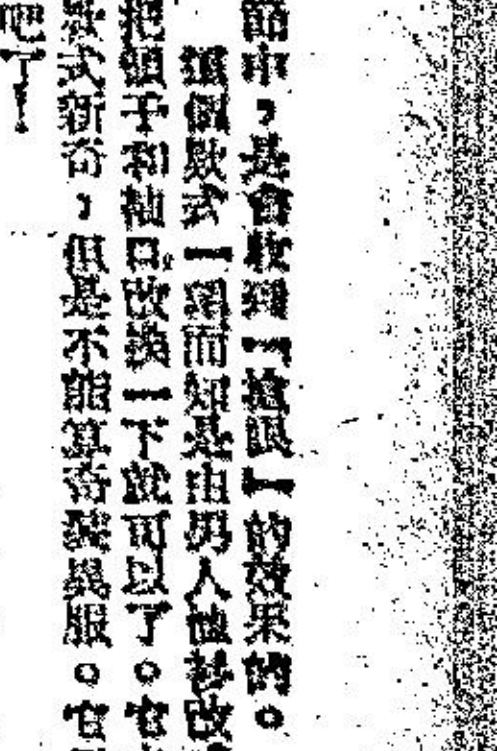 節中，是會收到「搶眼」的效果的。
這個款式一望而知是由男人恤衫改
把領子和袖口改換一下就可以了。它
款式新奇，但是不能算奇裝異服。它
吧了！